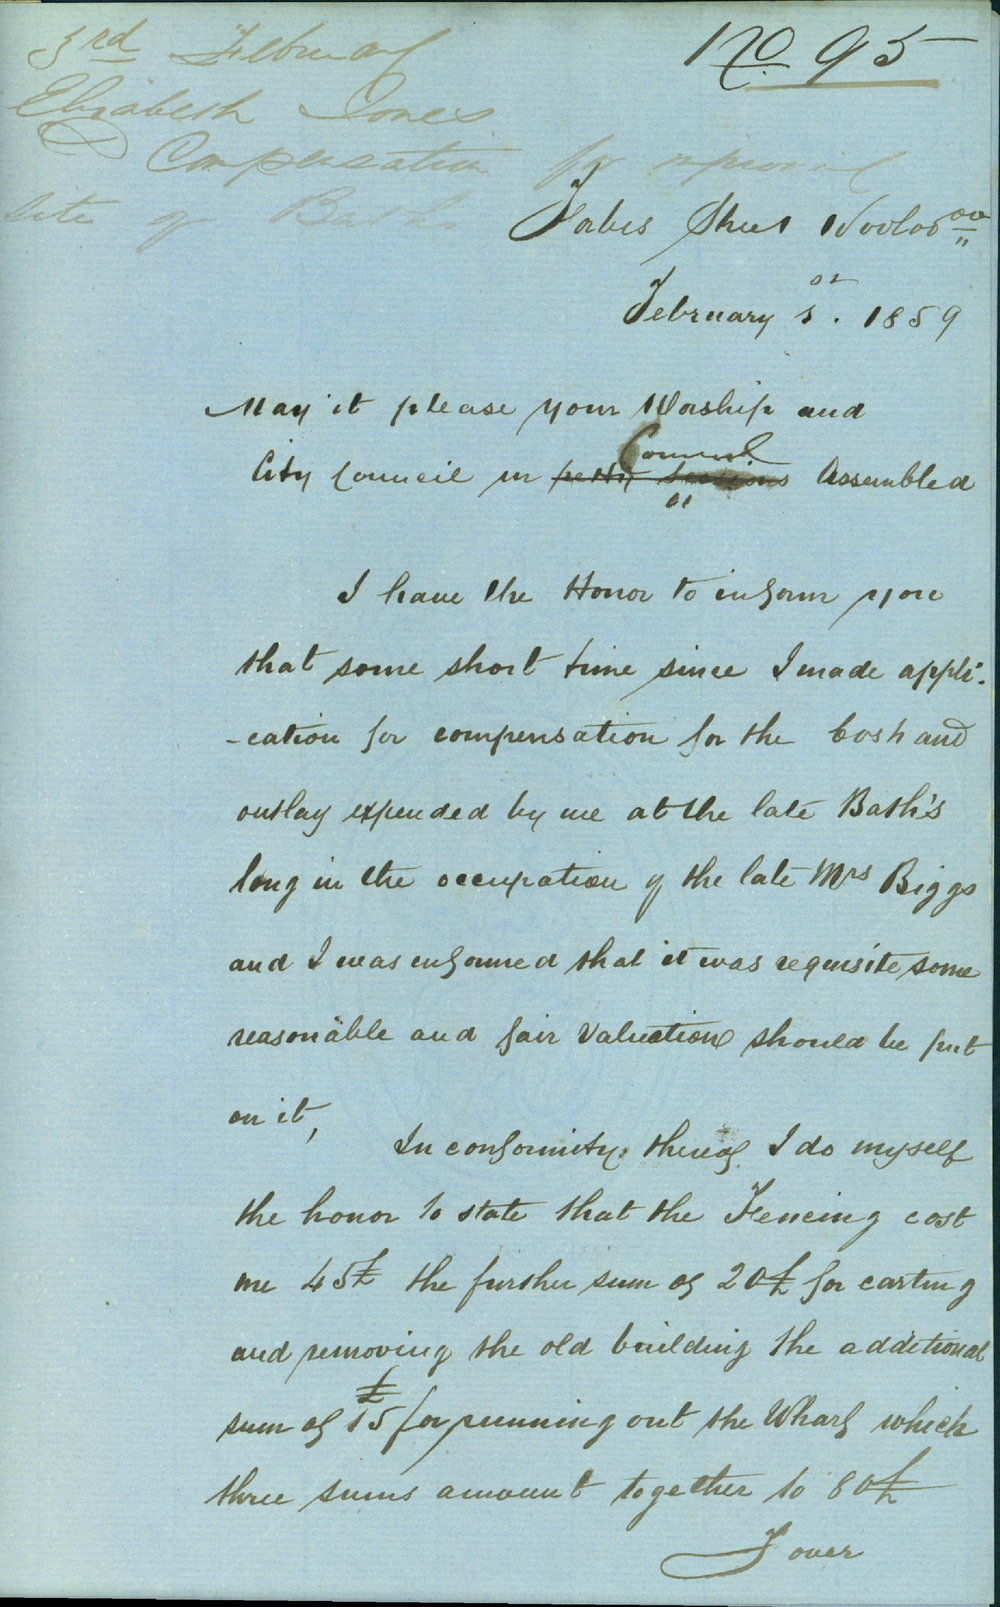 No 95
3rd February
Elizabeth Jones
Compensation for removal
site of Baths.
Forbes Street Wooloo oo
February 1st. 1859
May it please your Worship and
City Council in petty sessions Council Assembled
I have the Honor to inform you
that some short time since I made appli-
-cation for compensation for the Cost and
outlay expended by me at the late Bath's
long in the occupation of the late Mrs Biggs
and I was informed that it was requisite some
reasonable and fair valuation should be put
on it,
In conformity thereof I do myself
the honor to state that the Fencing cost
me 45£ the further sum of 20£ for carting
and removing the old building the additional
sum of £15 for running out the Wharf which
three sums amount together to 80£
over